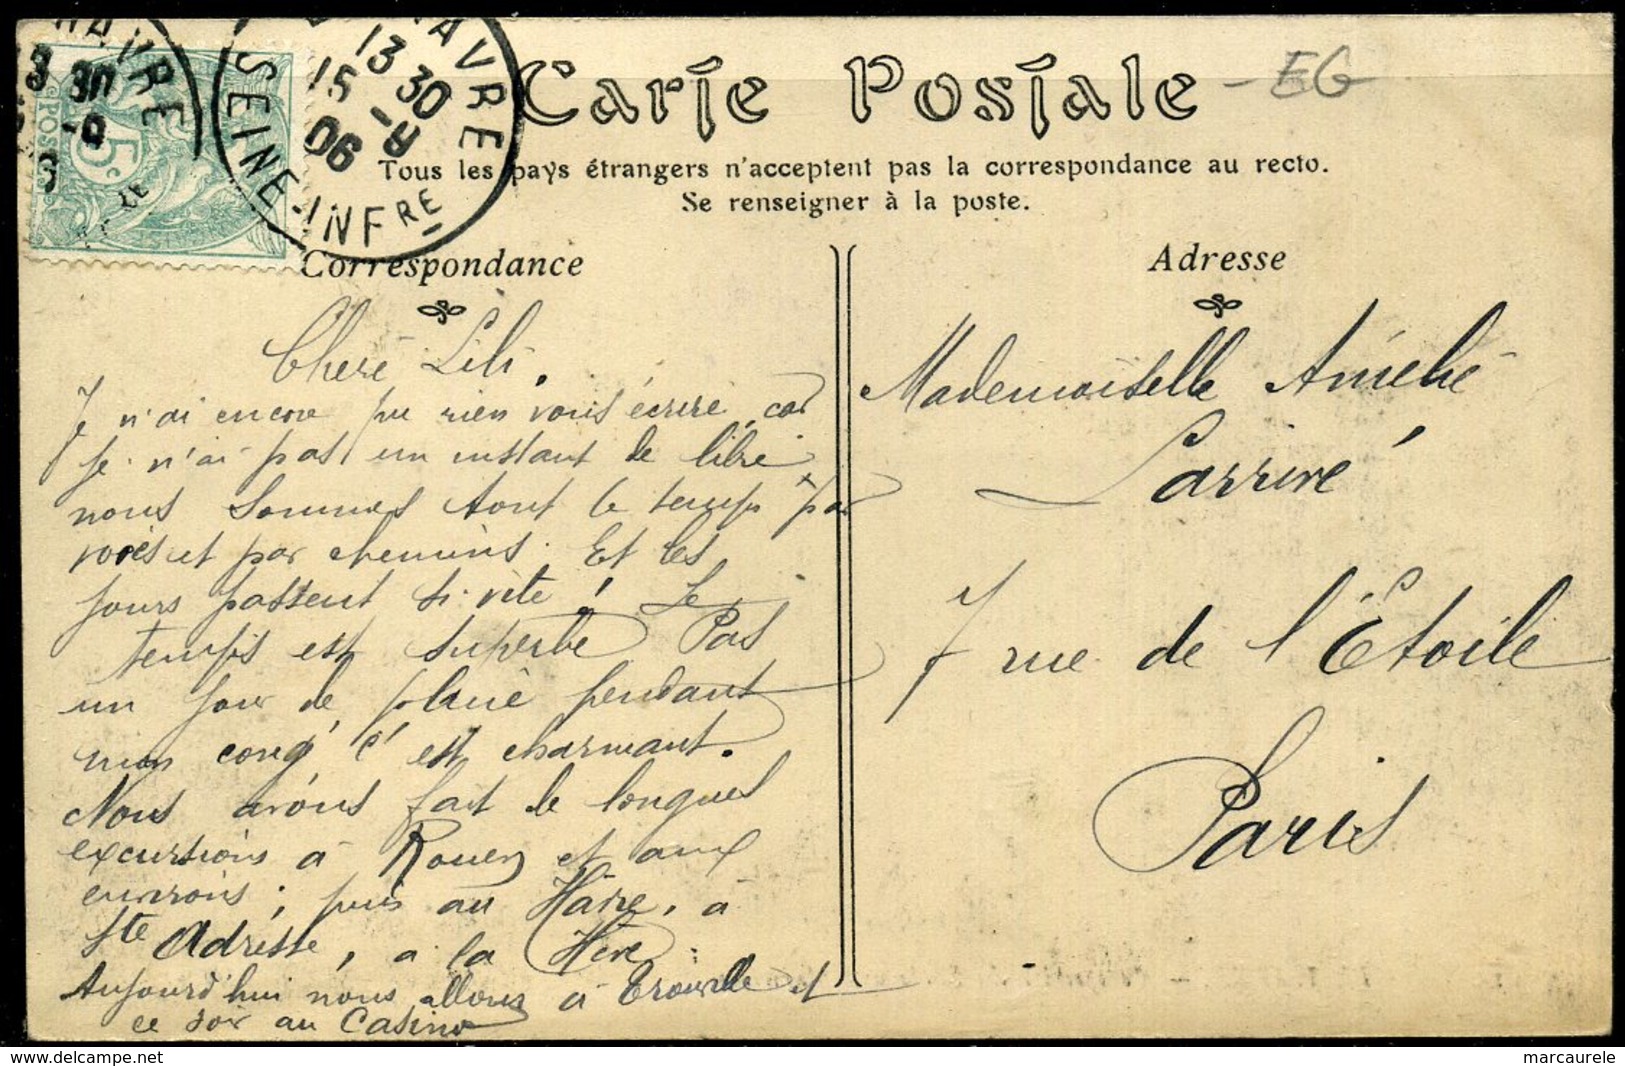 HAVRE
3 30
-8
6
5c
POSTES
HAVRE
13 30
15 -8
06
SEINE-INFRE
Carte Postale
- EG
Tous les pays étrangers n'acceptent pas la correspondance au recto.
Se renseigner à la poste.
Correspondance
Chere Lili.
Je n'ai encore pu rien vous écrire, car
je n'ai pas un instant de libre
nous sommes tout le temps par
voies et par chemins. Et les
jours passent si vite! Le
temps est superbe Pas
un jour de pluie pendant
mon congé c'est charmant.
Nous avons fait de longues
excursions à Rouen et aux
environs; puis au Havre, à
Ste Adresse, a la Heve
Aujourd'hui nous allons à Trouville et
ce soir au Casino
Adresse
Mademoiselle Amelie
Larrivé
7 rue de l'Étoile
Paris
marcaurele